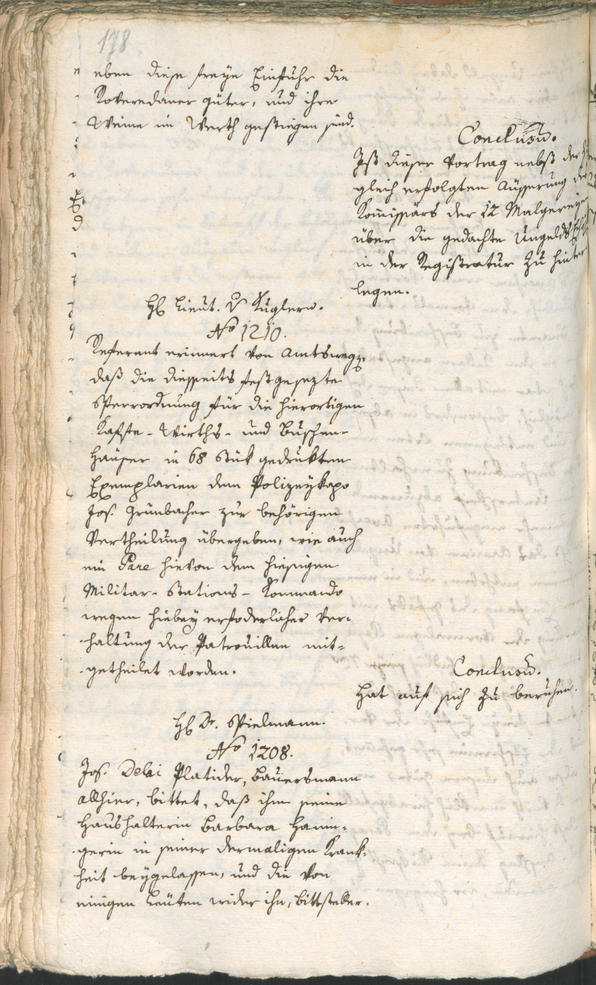 178
eben diese freye Einfuhr die
Roveredaner güter, und ihre
Weine im Werth gestiegen sind.
Conclusū.
Ist dieser Vortrag nebst der
gleich erfolgten Äusserung der
Kom̄issärs der 12 Malgereyen
über die gedachte Ungelds
in der Registratur zu hinter
legen.
H Lieut. v Kuglern.
No 1210.
Referent erinnert von Amtswegen,
daß die diesseits festgesetzte
Sperrordnung für die hierortigen
Kaffee- Wirths- und Buschen-
häuser in 68 Stük gedrukten
Exemplarien dem Polizeykapo
Jos. Grünbacher zur behörigen
Vertheilung übergeben, wie auch
ein Pare hievon dem hiesigen
Militar- Stations- Kommando
wegen hiebey erfoderlicher Ver-
haltung der Patrouillen mit-
getheilet worden.
Conclusū.
Hat auf sich zu beruhen.
H Dr. Spielmann.
No 1208.
Jos. Delai Platider, Bauersmann
allhier, bittet, daß ihm seine
Haushalterin Barbara Hanin-
gerin in seiner dermaligen Krank-
heit beygelassen, und die von
einigen Leuten wider ihn, Bittsteller,